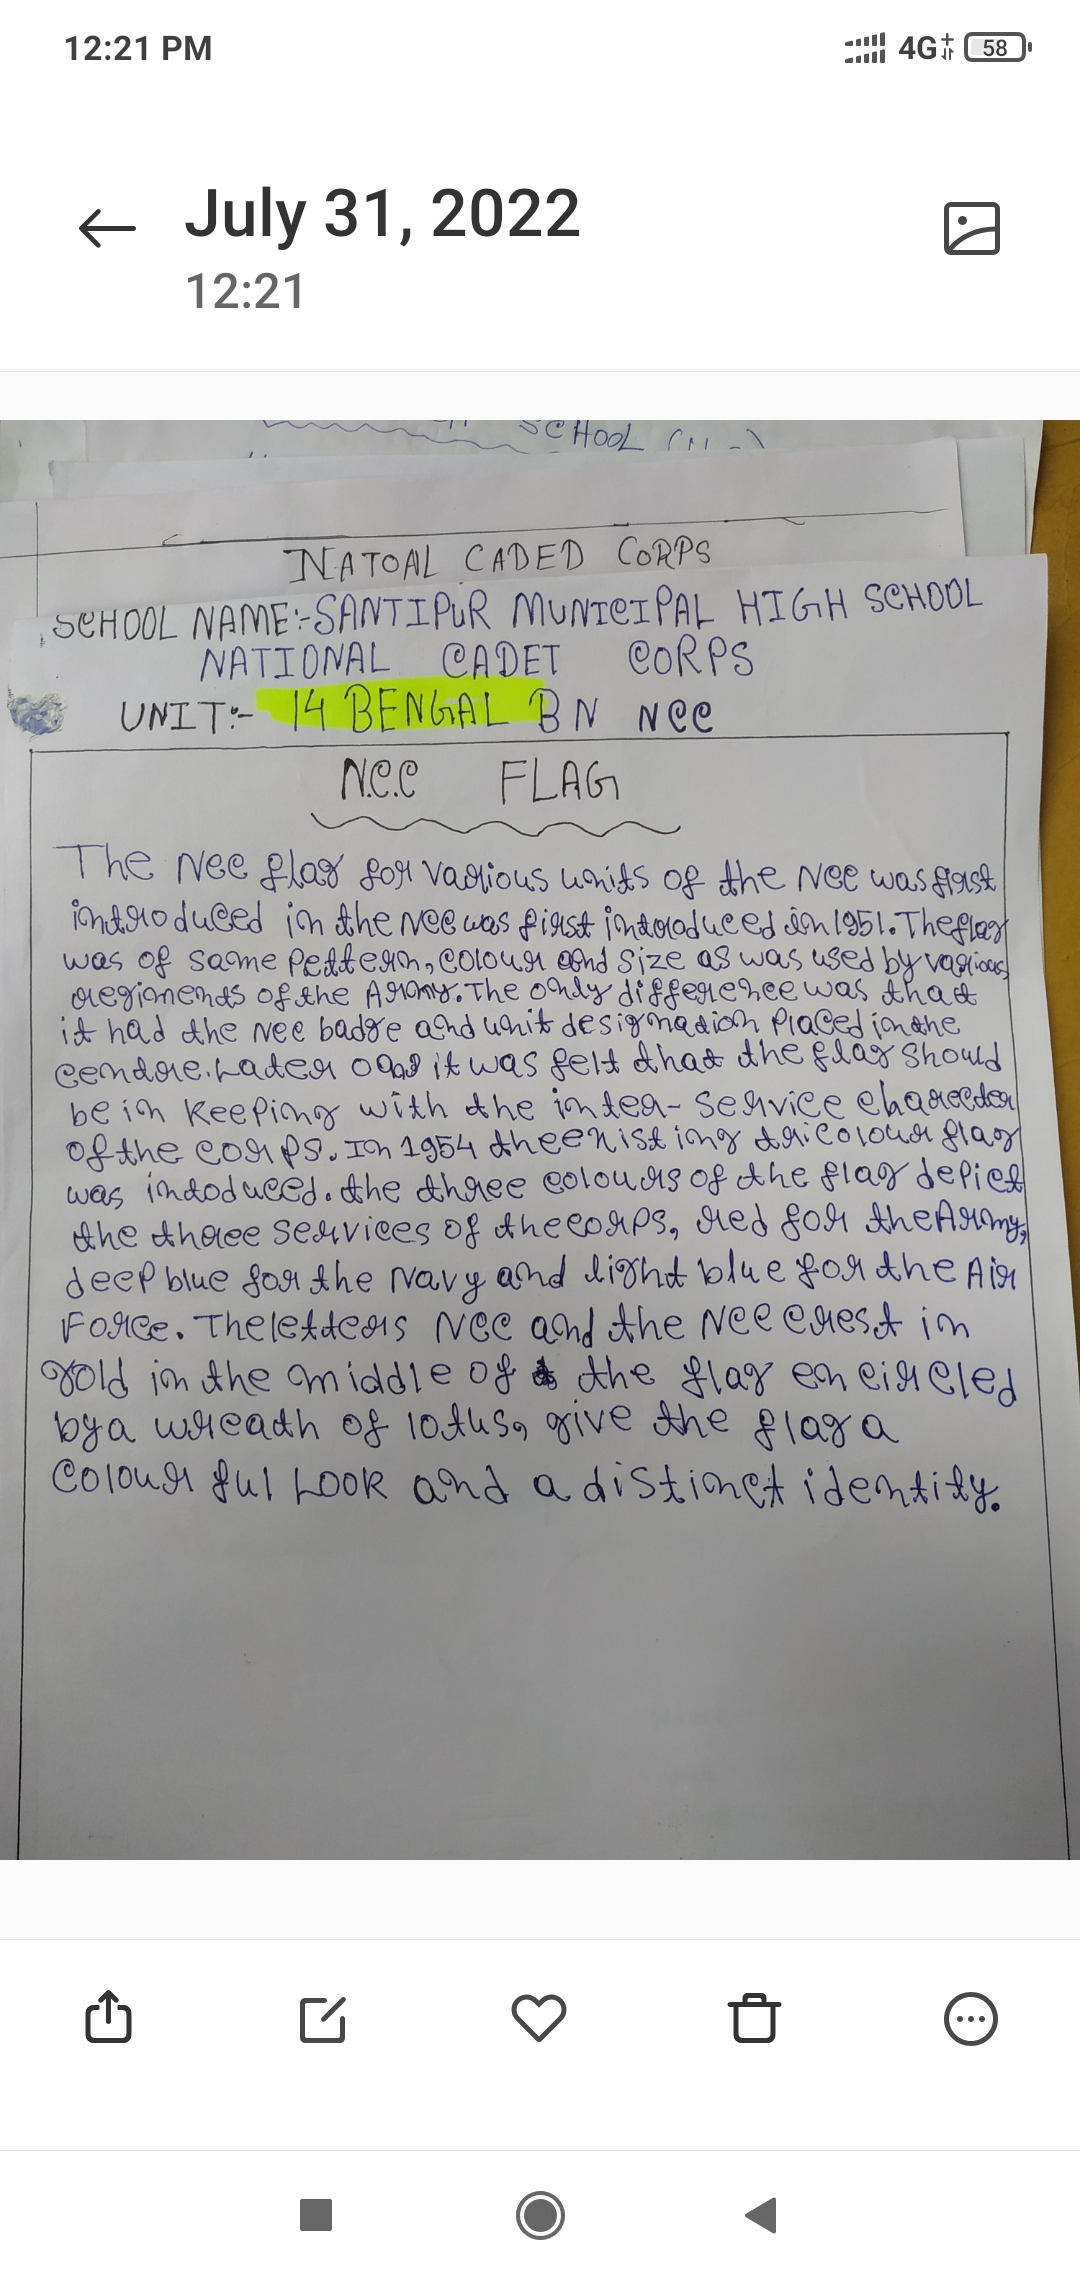 12:21 PM
4G+ 58
July 31, 2022
12:21
SCHOOL
NATOAL CADED CORPS
SCHOOL NAME:-SANTIPUR MUNICIPAL HIGH SCHOOL
NATIONAL CADET CORPS
UNIT:- 14 BENGAL BN NCC
N.C.C FLAG
The NCC flag for various units of the NCC was first
introduced in the NCC was first introduced in 1951. The flag
was of same pettern, colour and size as was used by various
regiments of the Army. The only difference was that
it had the NCC badge and unit designation placed in the
centre. Later it was felt that the flag should
be in keeping with the inter-service charecter
of the corps. In 1954 the existing tricolour flag
was intoduced. the three colours of the flag depict
the three services of the corps, red for the Army,
deep blue for the Navy and light blue for the Air
Force. The letters NCC and the NCC crest in
gold in the middle of the flag encircled
by a wreath of lotus, give the flag a
colourful Look and a distinct identity.